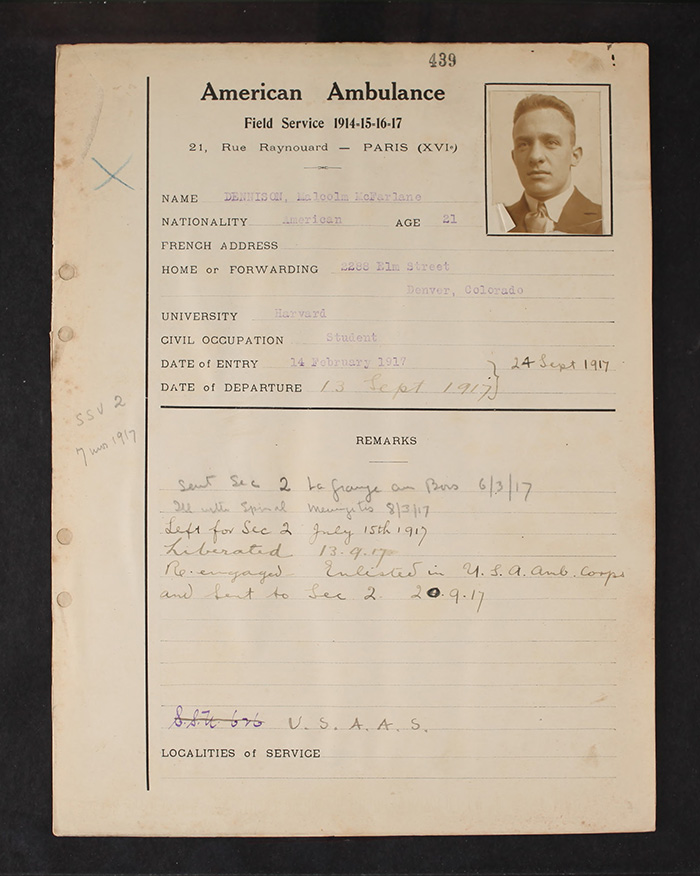 439
American Ambulance
Field Service 1914-15-16-17
21, Rue Raynouard — PARIS (XVIe)
NAME DENNISON, Malcolm McFarlane
NATIONALITY American AGE 21
FRENCH ADDRESS
HOME or FORWARDING 2288 Elm Street
Denver, Colorado
UNIVERSITY Harvard
CIVIL OCCUPATION Student
DATE of ENTRY 14 February 1917 } 24 Sept 1917
DATE of DEPARTURE 13 Sept 1917
SSU 2
7 mar 1917
REMARKS
Sent Sec 2 La Grange au Bois 6/3/17
Ill with Spinal Meningitis 8/3/17
Left for Sec 2 July 15th 1917
Liberated 13.9.17
Re-engaged Enlisted in U.S.A. Amb. Corps
and sent to Sec 2. 20.9.17
S.S.U. 626 U.S.A.A.S.
LOCALITIES of SERVICE